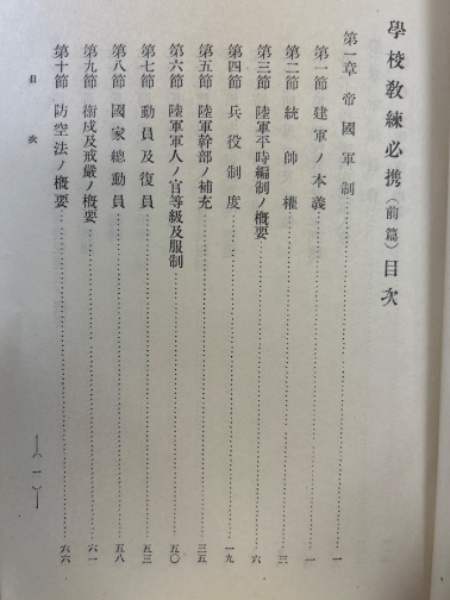 學校敎練必携（前篇）目次
第一章 帝國軍制……一
第一節 建軍ノ本義……一
第二節 統帥權……三
第三節 陸軍平時編制ノ概要……六
第四節 兵役制度……一九
第五節 陸軍幹部ノ補充……三五
第六節 陸軍軍人ノ官等級及服制……五〇
第七節 動員及復員……五三
第八節 國家總動員……五八
第九節 衞戍及戒嚴ノ概要……六一
第十節 防空法ノ概要……六六
目次
（一）